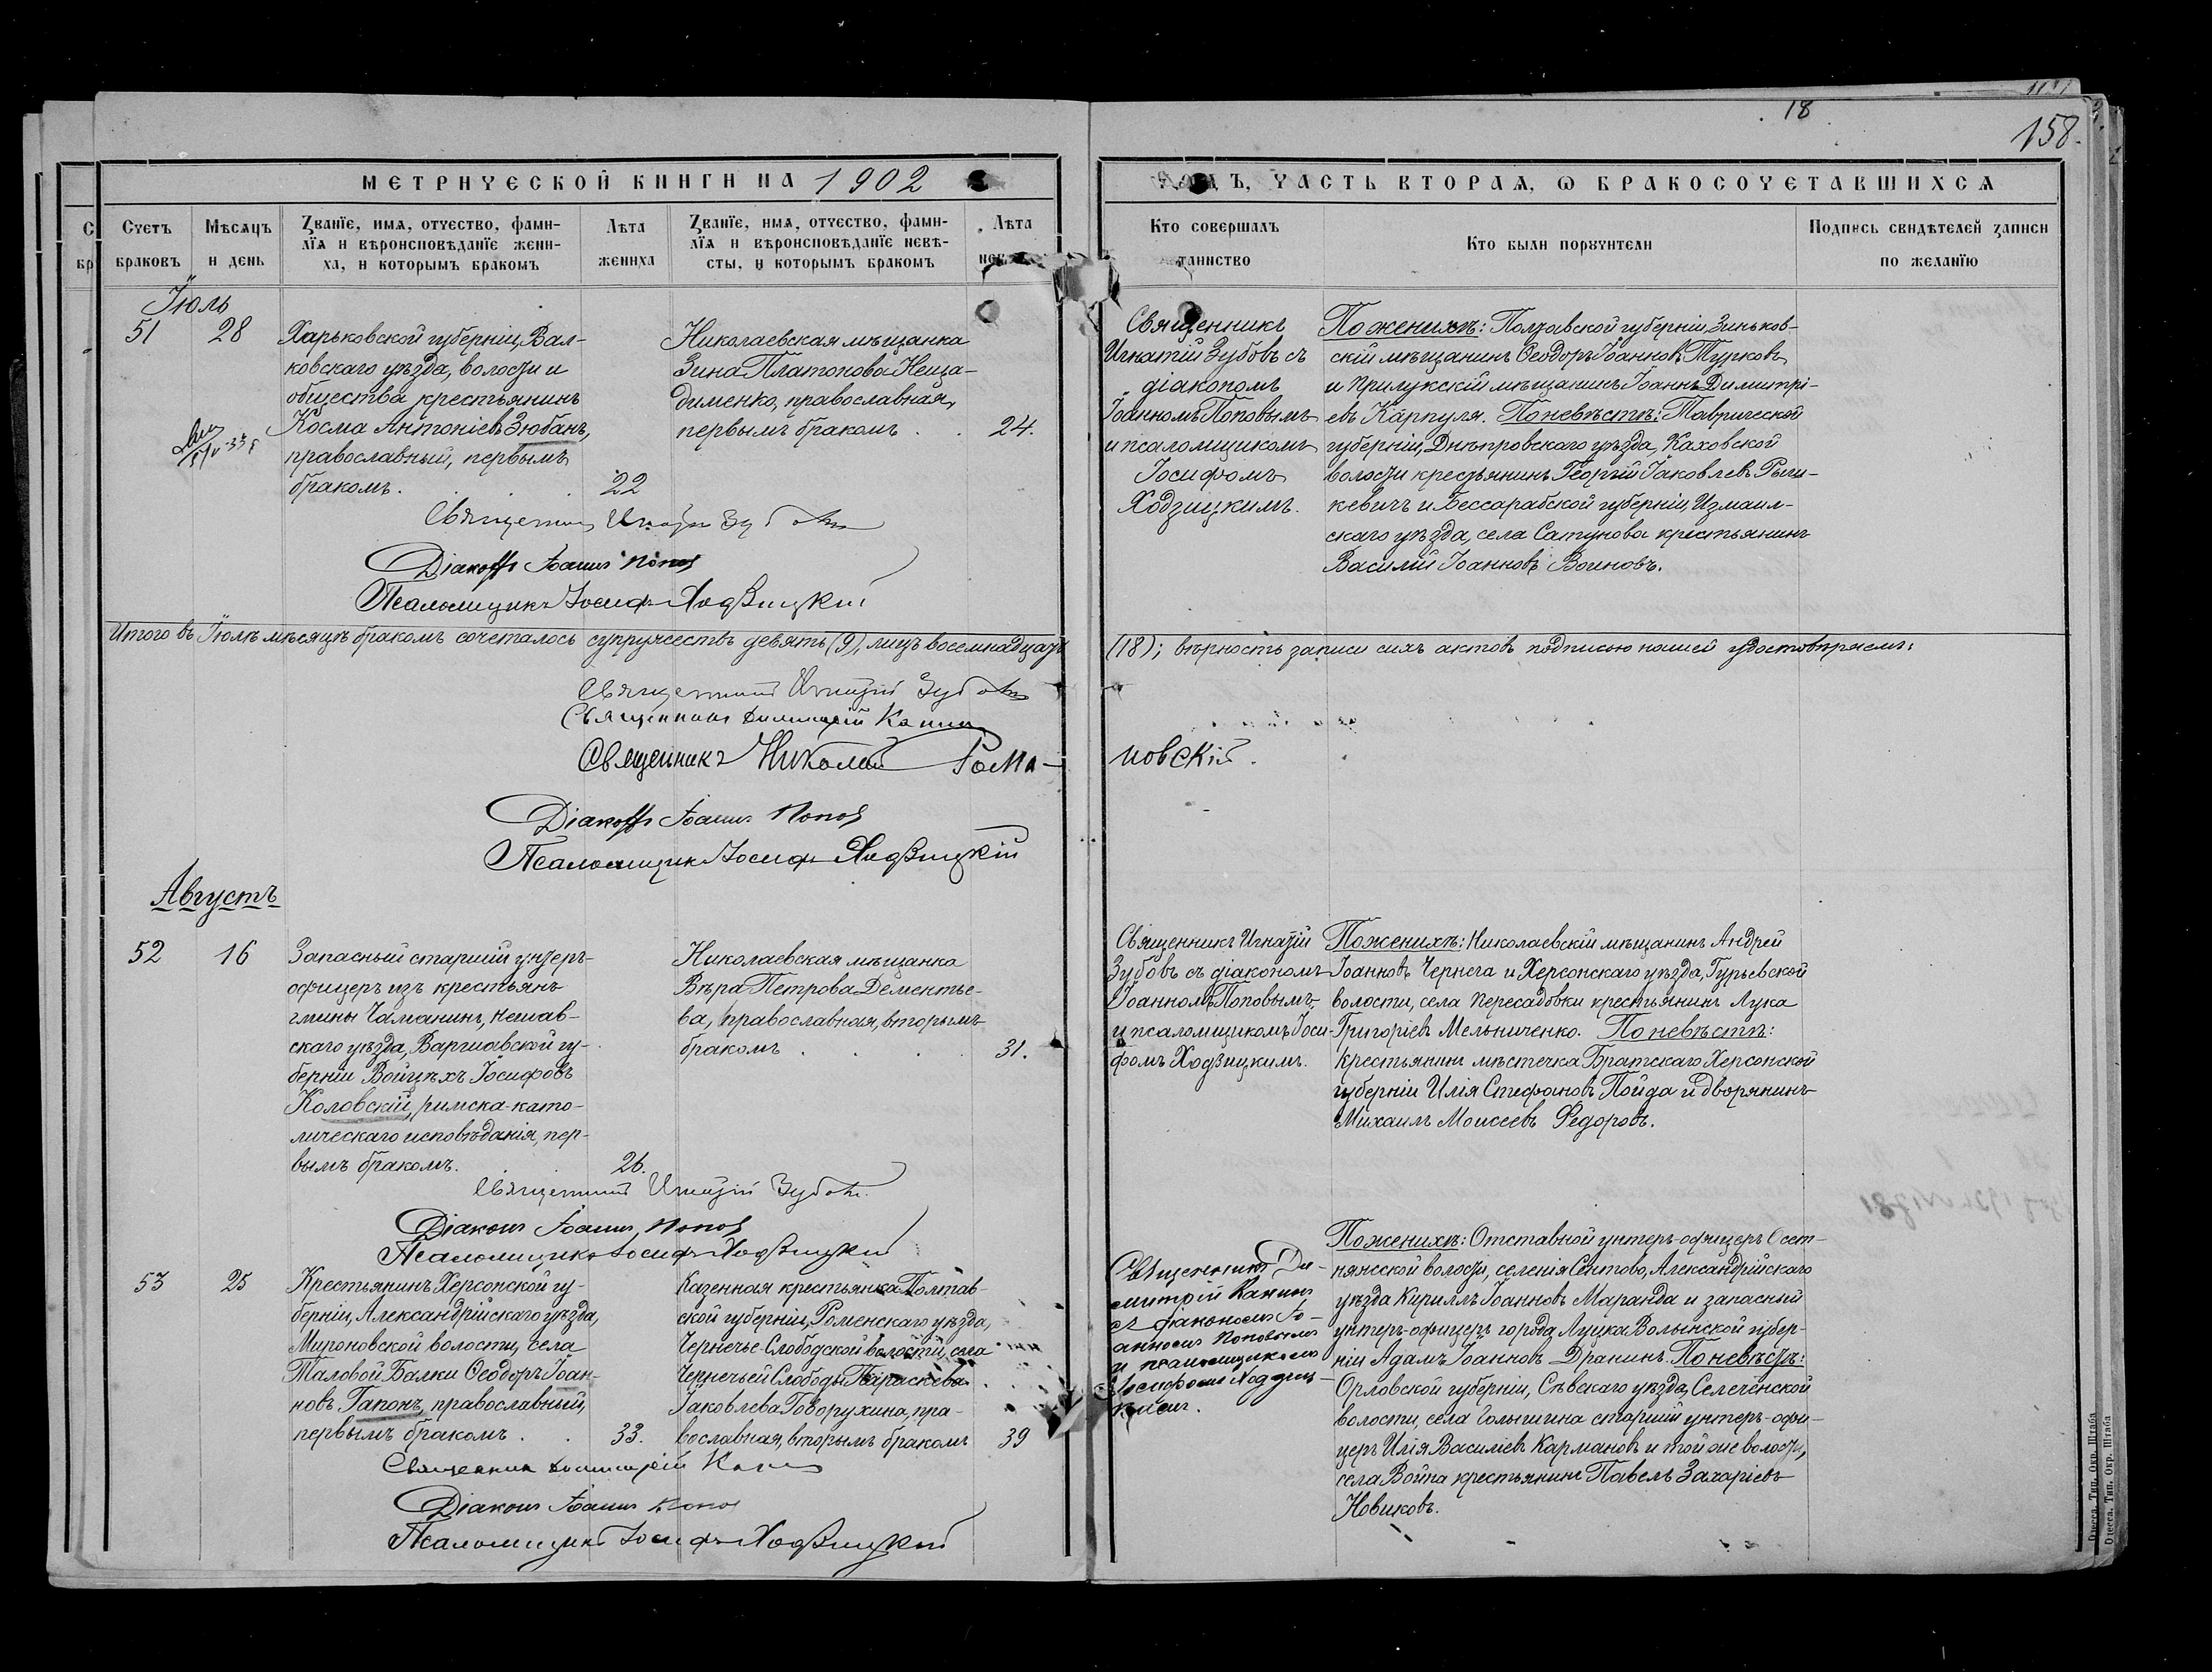 18
158.
МЕТРИЧЕСКОЙ КНИГИ НА 1902
ГОДЪ, ЧАСТЬ ВТОРАѦ, Ѡ БРАКОСОЧЕТАВШИХСѦ
Счетъ браковъ
Мѣсѧцъ и день
Ꙁванїе, имѧ, отчество, фами-
лїѧ и вѣроисповѣданїе жени-
ха, и которымъ бракомъ
Лѣта жениха
Ꙁванїе, имѧ, отчество, фами-
лїѧ и вѣроисповѣданїе невѣ-
сты, и которымъ бракомъ
Лѣта
Кто совершалъ
таинство
Кто были порꙋчители
Подпись свидѣтелей ꙁаписи
по желанїю
Іюль
51
28
Харьковской губерніи, Вал-
ковскаго уѣзда, волости и
общества крестьянинъ
Косма Антоніевъ Зюбанъ,
православный, первымъ
бракомъ.
22
Николаевская мѣщанка
Зина Платонова Неща-
дименко, православная,
первымъ бракомъ
24.
Священникъ
Игнатій Зубовъ съ
діакономъ
Іоанномъ Поповымъ
и псаломщикомъ
Іосифомъ
Ходзицкимъ.
По женихѣ: Полтавской губерніи, Зиньков-
скій мѣщанинъ Ѳеодоръ Іоанновъ Турковъ
и Прилукскій мѣщанинъ Іоаннъ Димитрі-
евъ Карпуля. По невѣстѣ: Таврической
губерніи, Днѣпровскаго уѣзда, Каховской
волости крестьянинъ Георгій Іаковлевъ
кевичъ и Бессарабской губерніи, Измаил-
скаго уѣзда, села Сатунова крестьянинъ
Василій Іоанновъ Воиновъ.
Священникъ Игнатій Зубовъ
Діаконъ Іоаннъ Поповъ
Псаломщикъ Іосифъ Ходзицкій
Итого въ Іюлѣ мѣсяцѣ бракомъ сочеталось супружествъ девять (9), лицъ восемнадцать
(18); вѣрность записи сихъ актовъ подписью нашей удостовѣряемъ:
Священникъ Игнатій Зубовъ
Священникъ Димитрій
Священникъ Николай Рома-
новскій.
Діаконъ Іоаннъ Поповъ
Псаломщикъ Іосифъ Ходзицкій
Августъ
52
16
Запасный старшій унтеръ-
офицеръ изъ крестьянъ
гмины Чаманинъ, Нешав-
скаго уѣзда, Варшавской гу-
берніи Войцѣхъ Іосифовъ
Коловскій, римска-като-
лическаго исповѣданія, пер-
вымъ бракомъ.
26.
Николаевская мѣщанка
Вѣра Петрова Дементье-
ва, православная, вторымъ
бракомъ
31.
Священникъ Игнатій
Зубовъ съ діакономъ
Іоанномъ Поповымъ
и псаломщикомъ Іоси-
фомъ Ходзицкимъ.
По женихѣ: Николаевскій мѣщанинъ Андрей
Іоанновъ Чернега и Херсонскаго уѣзда, Гурьевской
волости, села Пересадовки крестьянинъ Лука
Григоріевъ Мельниченко. По невѣстѣ:
крестьянинъ мѣстечка Братскаго Херсонской
губерніи Илія Стефановъ Пойда и дворянинъ
Михаилъ Моисеевъ Федоровъ.
Священникъ Игнатій Зубовъ.
Діаконъ Іоаннъ Поповъ
Псаломщикъ Іосифъ Ходзицкій
53
25
Крестьянинъ Херсонской гу-
берніи, Александрійскаго уѣзда,
Мироновской волости, села
Таловой Балки Ѳеодоръ Іоан-
новъ Гапонъ, православный,
первымъ бракомъ
33.
Казенная крестьянка Полтав-
ской губерніи, Роменскаго уѣзда,
Чернечье-Слободской волости, села
Чернечьей Слободы Параскева
Іаковлева Говорухина, пра-
вославная, вторымъ бракомъ
39
Священникъ Ди-
митрій
съ діакономъ Іо-
анномъ Поповымъ
и псаломщикомъ
Іосифомъ Ходзиц-
кимъ.
По женихѣ: Отставной унтеръ-офицеръ Осет-
нянской волости, селенія Сентово, Александрійскаго
уѣзда Кириллъ Іоанновъ Маранда и запасный
унтеръ-офицеръ города Луцка Волынской губер-
ніи Адамъ Іоанновъ Дранинъ. По невѣстѣ:
Орловской губерніи, Сѣвскаго уѣзда, Селеченской
волости, села Голышина старшій унтеръ-офи-
церъ Илія Василіевъ Кармановъ и той же волости,
села Война крестьянинъ Павелъ Захаріевъ
Новиковъ.
Священникъ Димитрій
Діаконъ Іоаннъ Поповъ
Псаломщикъ Іосифъ Ходзицкій
Одесса. Тип. Окр. Штаба
Одесса. Тип. Окр. Штаба